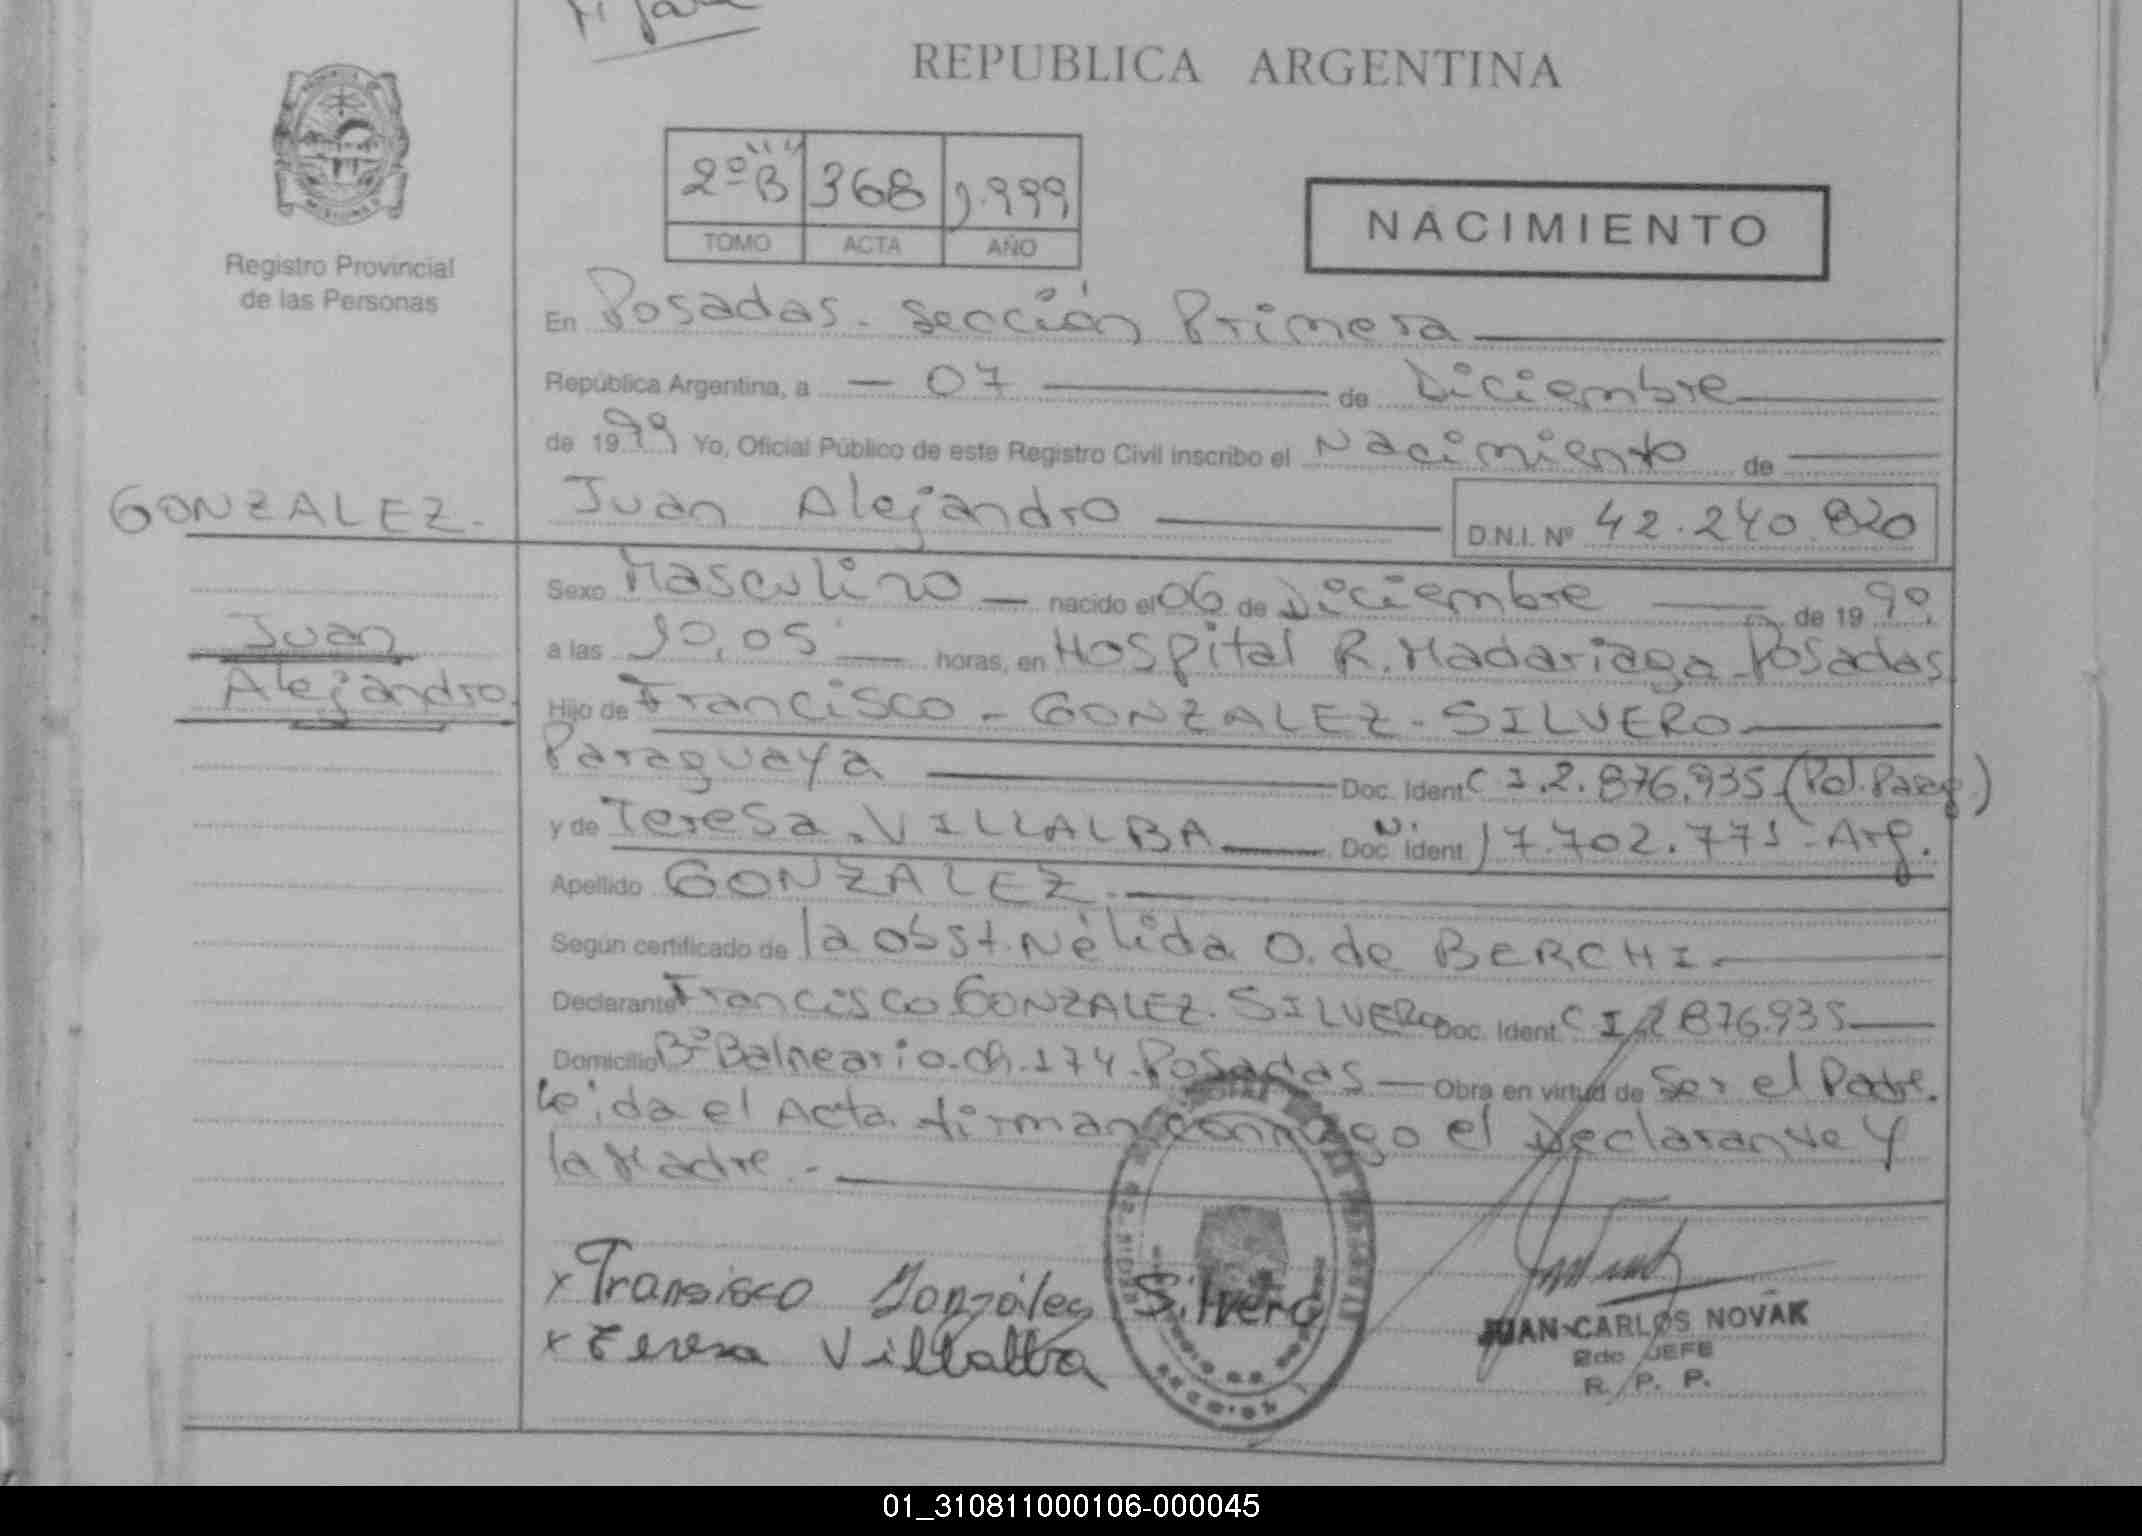 REPUBLICA ARGENTINA
2º B 368 1.999
TOMO ACTA AÑO
NACIMIENTO
Registro Provincial
de las Personas
En Posadas - Sección Primera
República Argentina, a 07 de Diciembre
de 1999 Yo, Oficial Público de este Registro Civil inscribo el Nacimiento de
GONZALEZ.
Juan Alejandro D.N.I. Nº 42.240.820
Juan
Alejandro
Sexo Masculino nacido el 06 de Diciembre de 1999
a las 10,05 horas, en Hospital R. Madariaga - Posadas
Hijo de Francisco - GONZALEZ - SILVERO
Paraguaya Doc. Ident C I. 2.876.935 (Pol. Parag.)
y de Teresa. VILLALBA Doc. N. Ident 17.702.771 - Arg.
Apellido GONZALEZ.
Según certificado de la obst. Nélida O. de BERCHI.
Declarante Francisco GONZALEZ. SILVERO Doc. Ident. C I 2 876.935
Domicilio Bº Balneario - Ch. 174 - Posadas Obra en virtud de Ser el Padre.
Leída el Acta. firman conmigo el Declarante y
la Madre. -
x Fransisco Gonzáles Silvero
x Teresa Villalba
JUAN CARLOS NOVAK
2do JEFE
R. P. P.
01_310811000106-000045